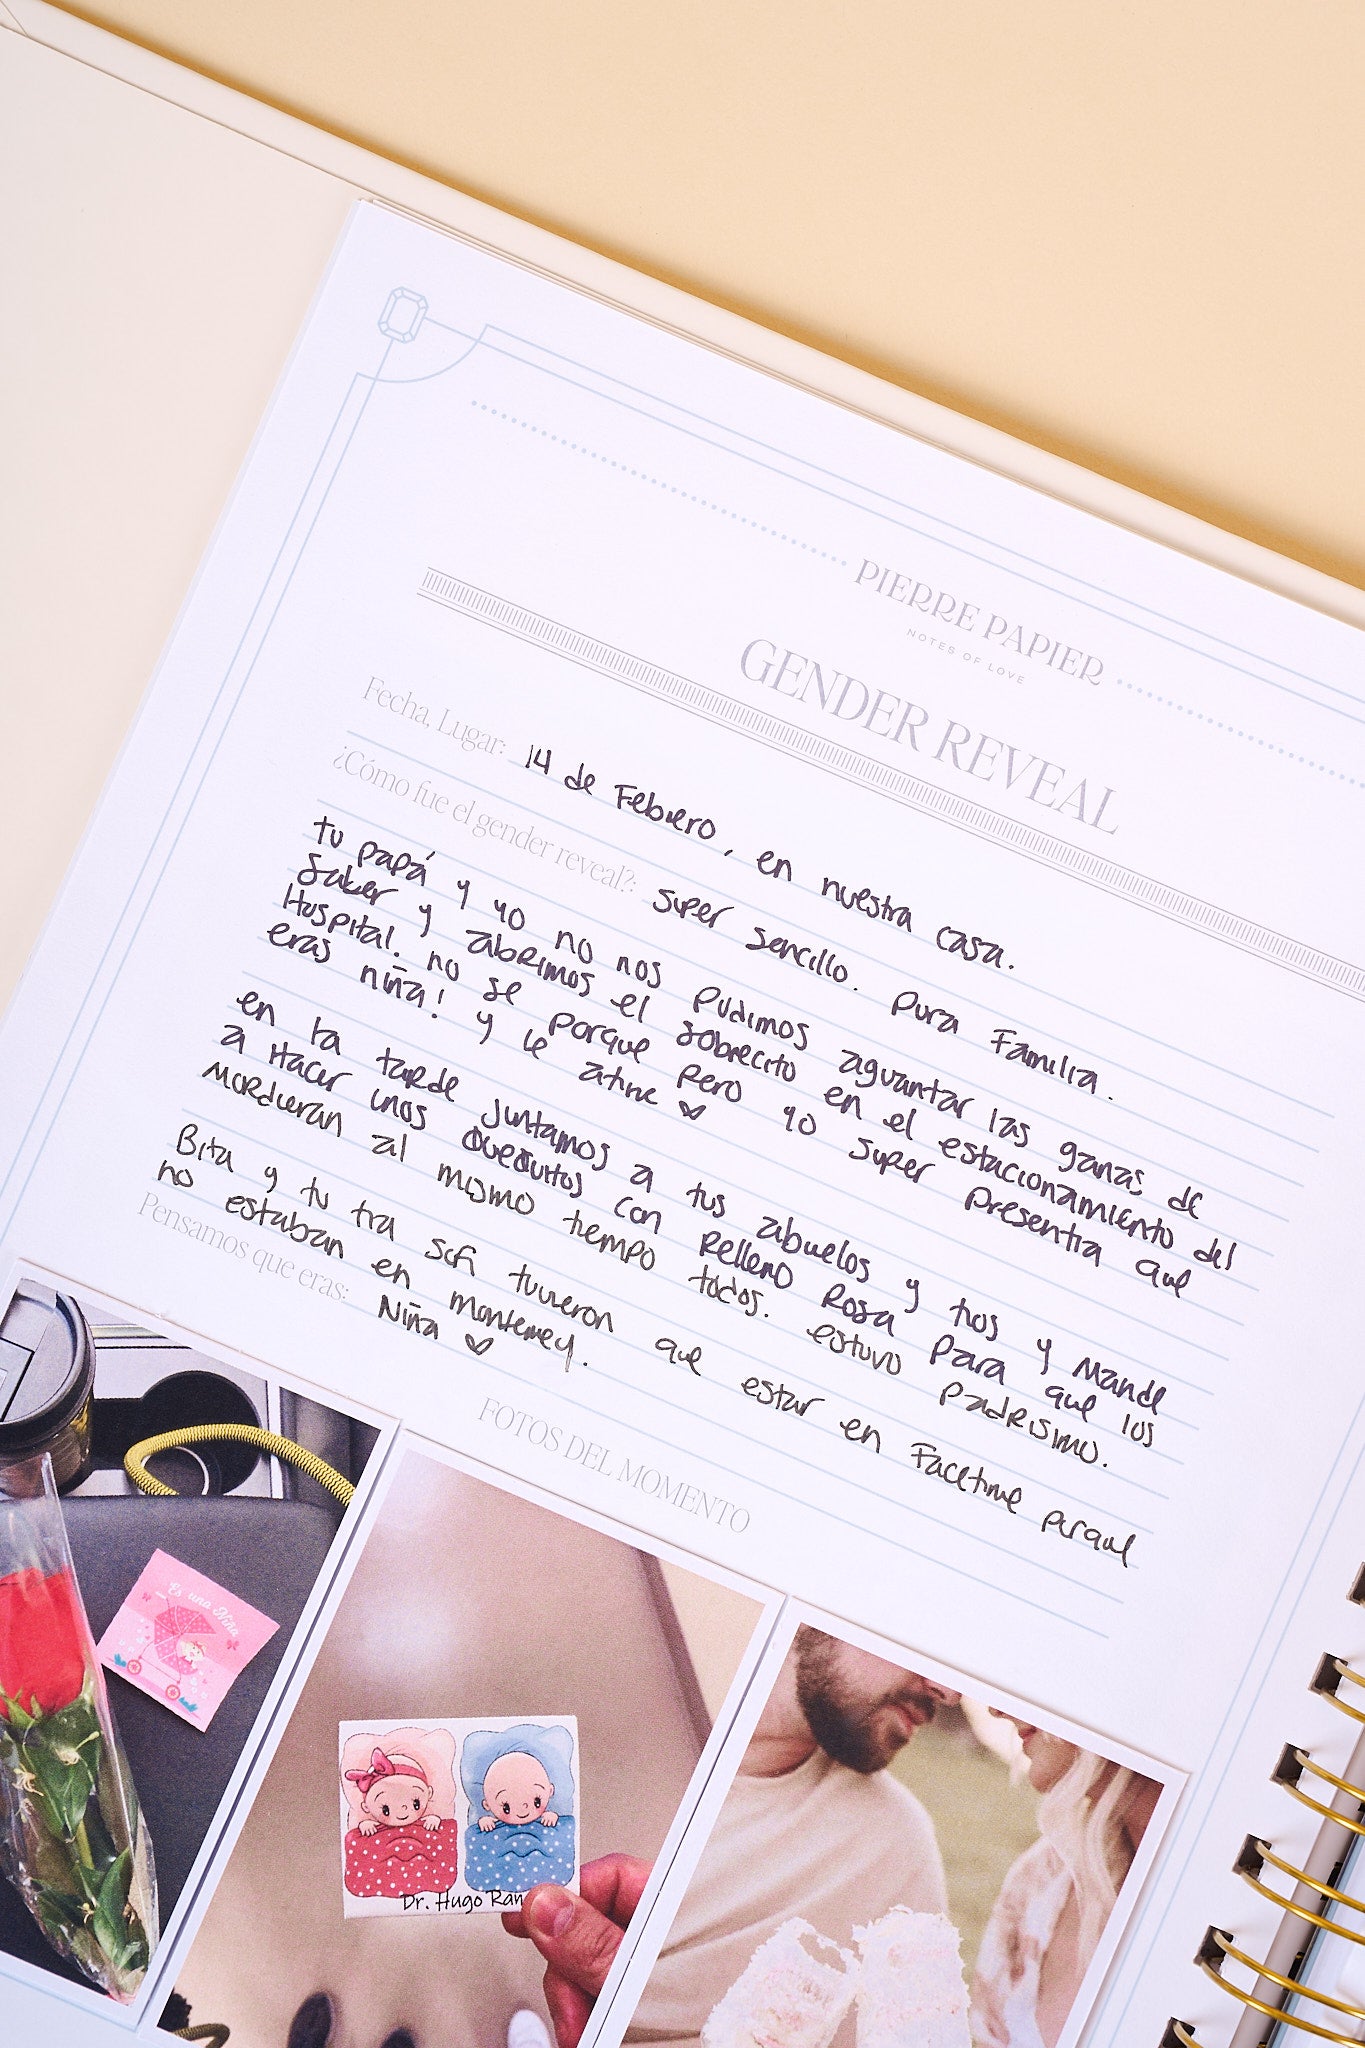 PIERRE PAPIER
NOTES OF LOVE
GENDER REVEAL
Fecha, Lugar: 14 de Febrero, en nuestra casa.
¿Cómo fue el gender reveal?: super sencillo. Pura Familia.
Tu papá y yo no nos pudimos aguantar las ganas de
Saber y abrimos el sobrecito en el estacionamiento del
Hospital. no se porque pero yo super presentia que
eras niña! y le atine
en la tarde juntamos a tus abuelos y tios y Mande
a Hacer unos quequitos con Relleno Rosa Para que los
Mordieran al mismo tiempo todos. estuvo padrisimo.
Bita y tu tia Sofi tuvieron que estar en Facetime porque
no estaban en monterrey.
Pensamos que eras: Niña
FOTOS DEL MOMENTO
Es una Niña
Dr. Hugo Ran